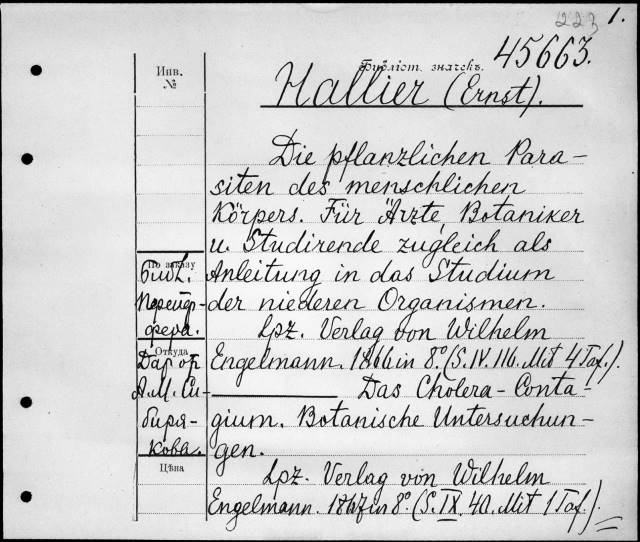 223
1.
45663.
Библіот. значекъ.
Инв.
№
Hallier (Ernst).
Die pflanzlichen Para-
siten des menschlichen
Körpers. Für Ärzte, Botaniker
u. Studirende zugleich als
Anleitung in das Studium
der niederen Organismen.
Lpz. Verlag von Wilhelm
Engelmann. 1866 in 8º. (S. IV. 116. Mit 4 Taf.).
Das Cholera-Conta-
gium. Botanische Untersuchun-
gen.
Lpz. Verlag von Wilhelm
Engelmann. 1867 in 8º. (S. IX. 40. Mit 1 Taf.)
По заказу
Библ.
Откуда
Дар от
А. М. Си-
биря-
кова.
Цѣна